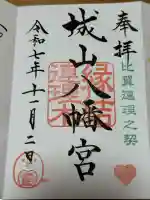 奉拝
比翼連理之契
縁結
連理木
城山八幡宮
令和七年十一月二日